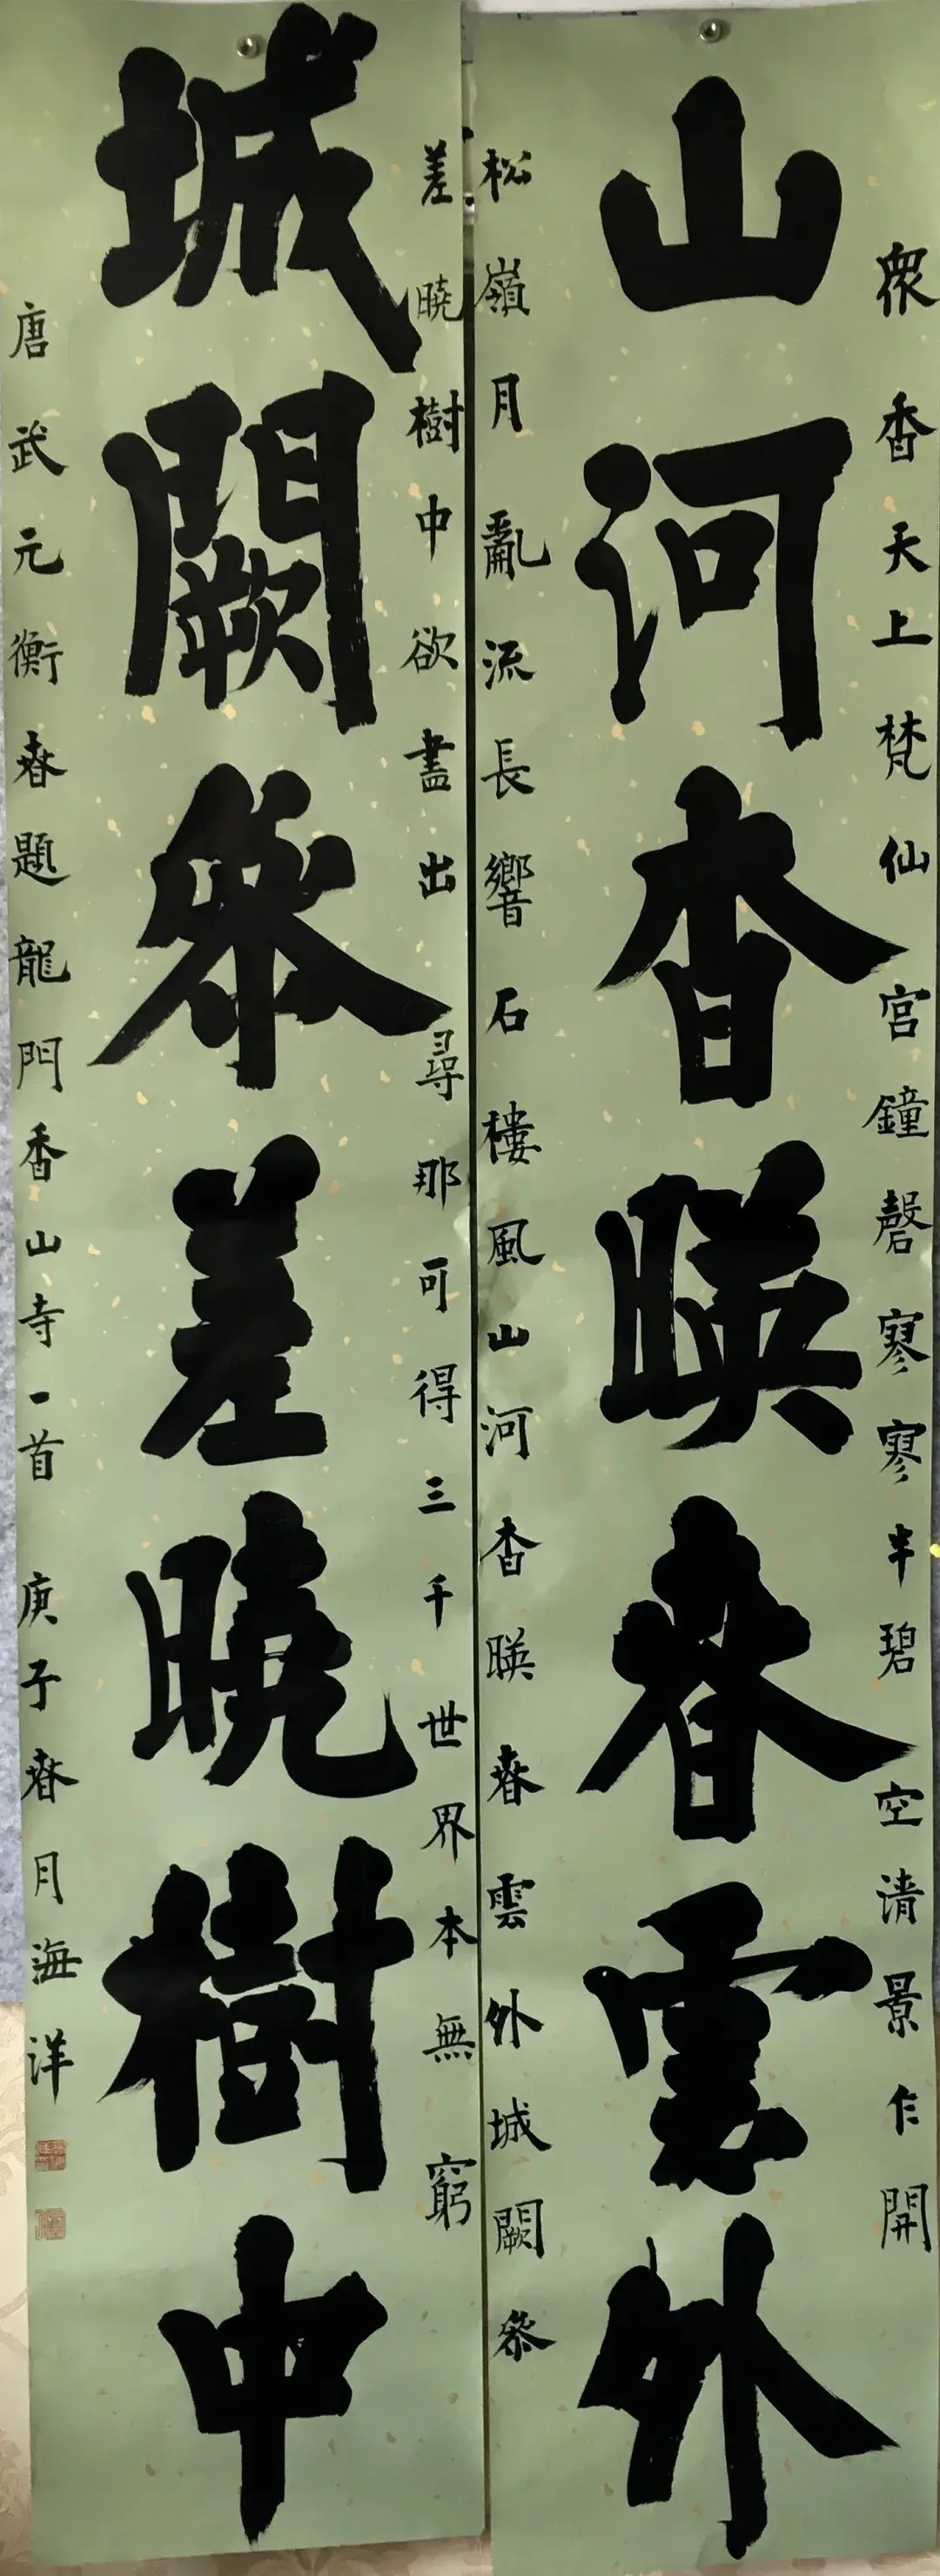 衆香天上梵仙宮鐘磬寥寥半碧空清景乍開
山河杳暎春雲外
松嶺月亂流長響石樓風山河杳暎春雲外城闕參
差曉樹中欲盡出尋那可得三千世界本無窮
城闕參差曉樹中
唐武元衡春題龍門香山寺一首庚子春月海洋